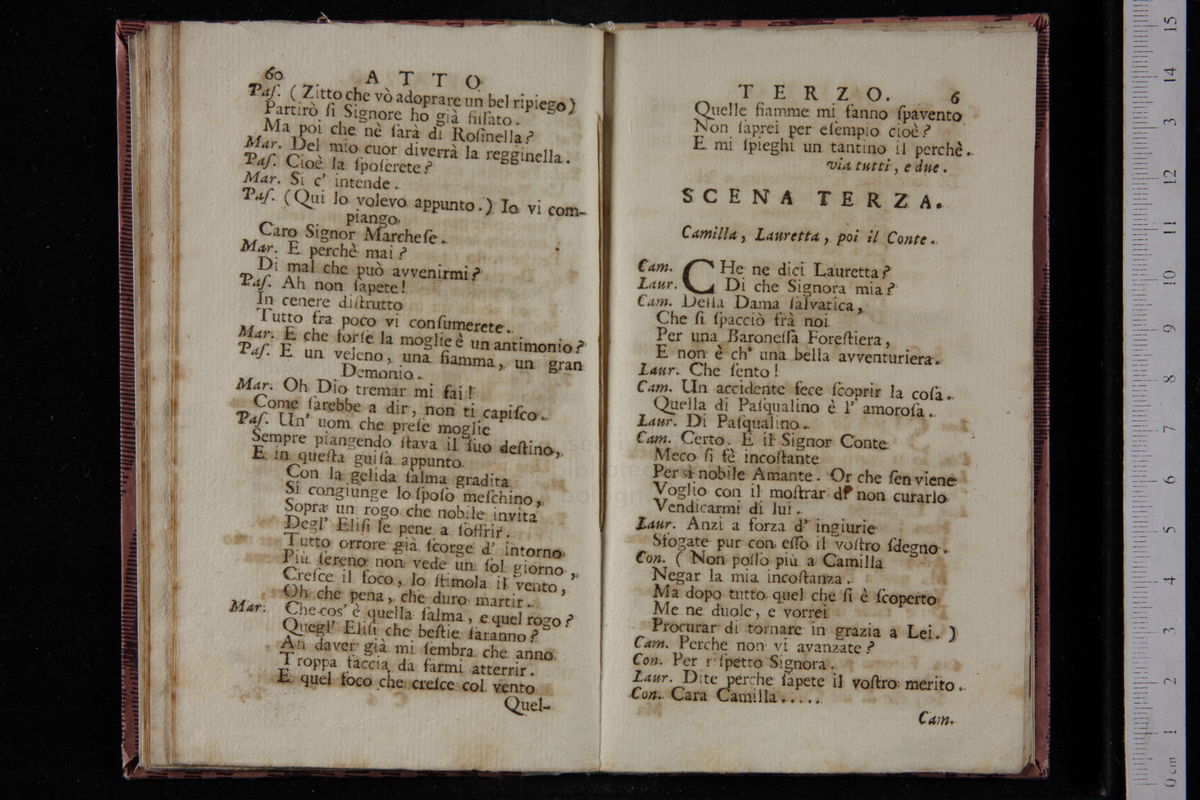 60 ATTO
Paſ. (Zitto che vò adoprare un bel ripiego)
Partirò ſi Signore ho già fiſſato.
Ma poi che nè ſarà di Roſinella?
Mar. Del mio cuor diverrà la regginella.
Paſ. Cioè la ſpoſerete?
Mar. Si c' intende.
Paſ. (Qui lo volevo appunto.) Io vi com-
piango
Caro Signor Marcheſe.
Mar. E perchè mai?
Di mal che può avvenirmi?
Paſ. Ah non ſapete!
In cenere diſtrutto
Tutto fra poco vi conſumerete.
Mar. E che forſe la moglie è un antimonio?
Paſ. E un veleno, una fiamma, un gran
Demonio.
Mar. Oh Dio tremar mi fai!
Come ſarebbe a dir, non ti capiſco.
Paſ. Un' uom che preſe moglie
Sempre piangendo ſtava il ſuo deſtino,
E in queſta guiſa appunto
Con la gelida ſalma gradita
Si congiunge lo ſpoſo meſchino,
Sopra un rogo che nobile invita
Degl' Eliſi le pene a ſoffrir.
Tutto orrore già ſcorge d' intorno
Più ſereno non vede un ſol giorno,
Creſce il foco, lo ſtimola il vento,
Oh che pena, che duro martir.
Mar. Che cos' è quella ſalma, e quel rogo?
Quegl' Eliſi che beſtie ſaranno?
Ah daver già mi ſembra che anno
Troppa faccia da farmi atterrir.
E quel foco che creſce col vento
Quel-
TERZO. 6
Quelle fiamme mi fanno ſpavento
Non ſaprei per eſempio cioè?
E mi ſpieghi un tantino il perchè.
via tutti, e due.
SCENA TERZA.
Camilla, Lauretta, poi il Conte.
Cam. CHe ne dici Lauretta?
Laur. Di che Signora mia?
Cam. Della Dama ſalvatica,
Che ſi ſpacciò frà noi
Per una Baroneſſa Foreſtiera,
E non è ch' una bella avventuriera.
Laur. Che ſento!
Cam. Un accidente fece ſcoprir la coſa.
Quella di Paſqualino è l' amoroſa.
Laur. Di Paſqualino.
Cam. Certo. E il Signor Conte
Meco ſi fè incoſtante
Per sì nobile Amante. Or che ſen viene
Voglio con il moſtrar di non curarlo
Vendicarmi di lui.
Laur. Anzi a forza d' ingiurie
Sfogate pur con eſſo il voſtro ſdegno.
Con. (Non poſſo più a Camilla
Negar la mia incoſtanza.
Ma dopo tutto quel che ſi è ſcoperto
Me ne duole, e vorrei
Procurar di tornare in grazia a Lei.)
Cam. Perche non vi avanzate?
Con. Per riſpetto Signora.
Laur. Dite perche ſapete il voſtro merito.
Con. Cara Camilla.....
Cam.
0 cm 1 2 3 4 5 6 7 8 9 10 11 12 13 14 15